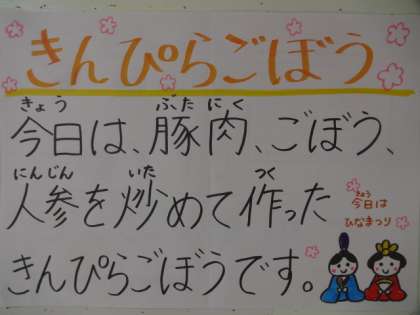 きんぴらごぼう
きょう ぶた にく
今日は、豚肉、ごぼう、
にんじん いた つく
人参を炒めて作った
きょう
今日は
ひなまつり
きんぴらごぼうです。